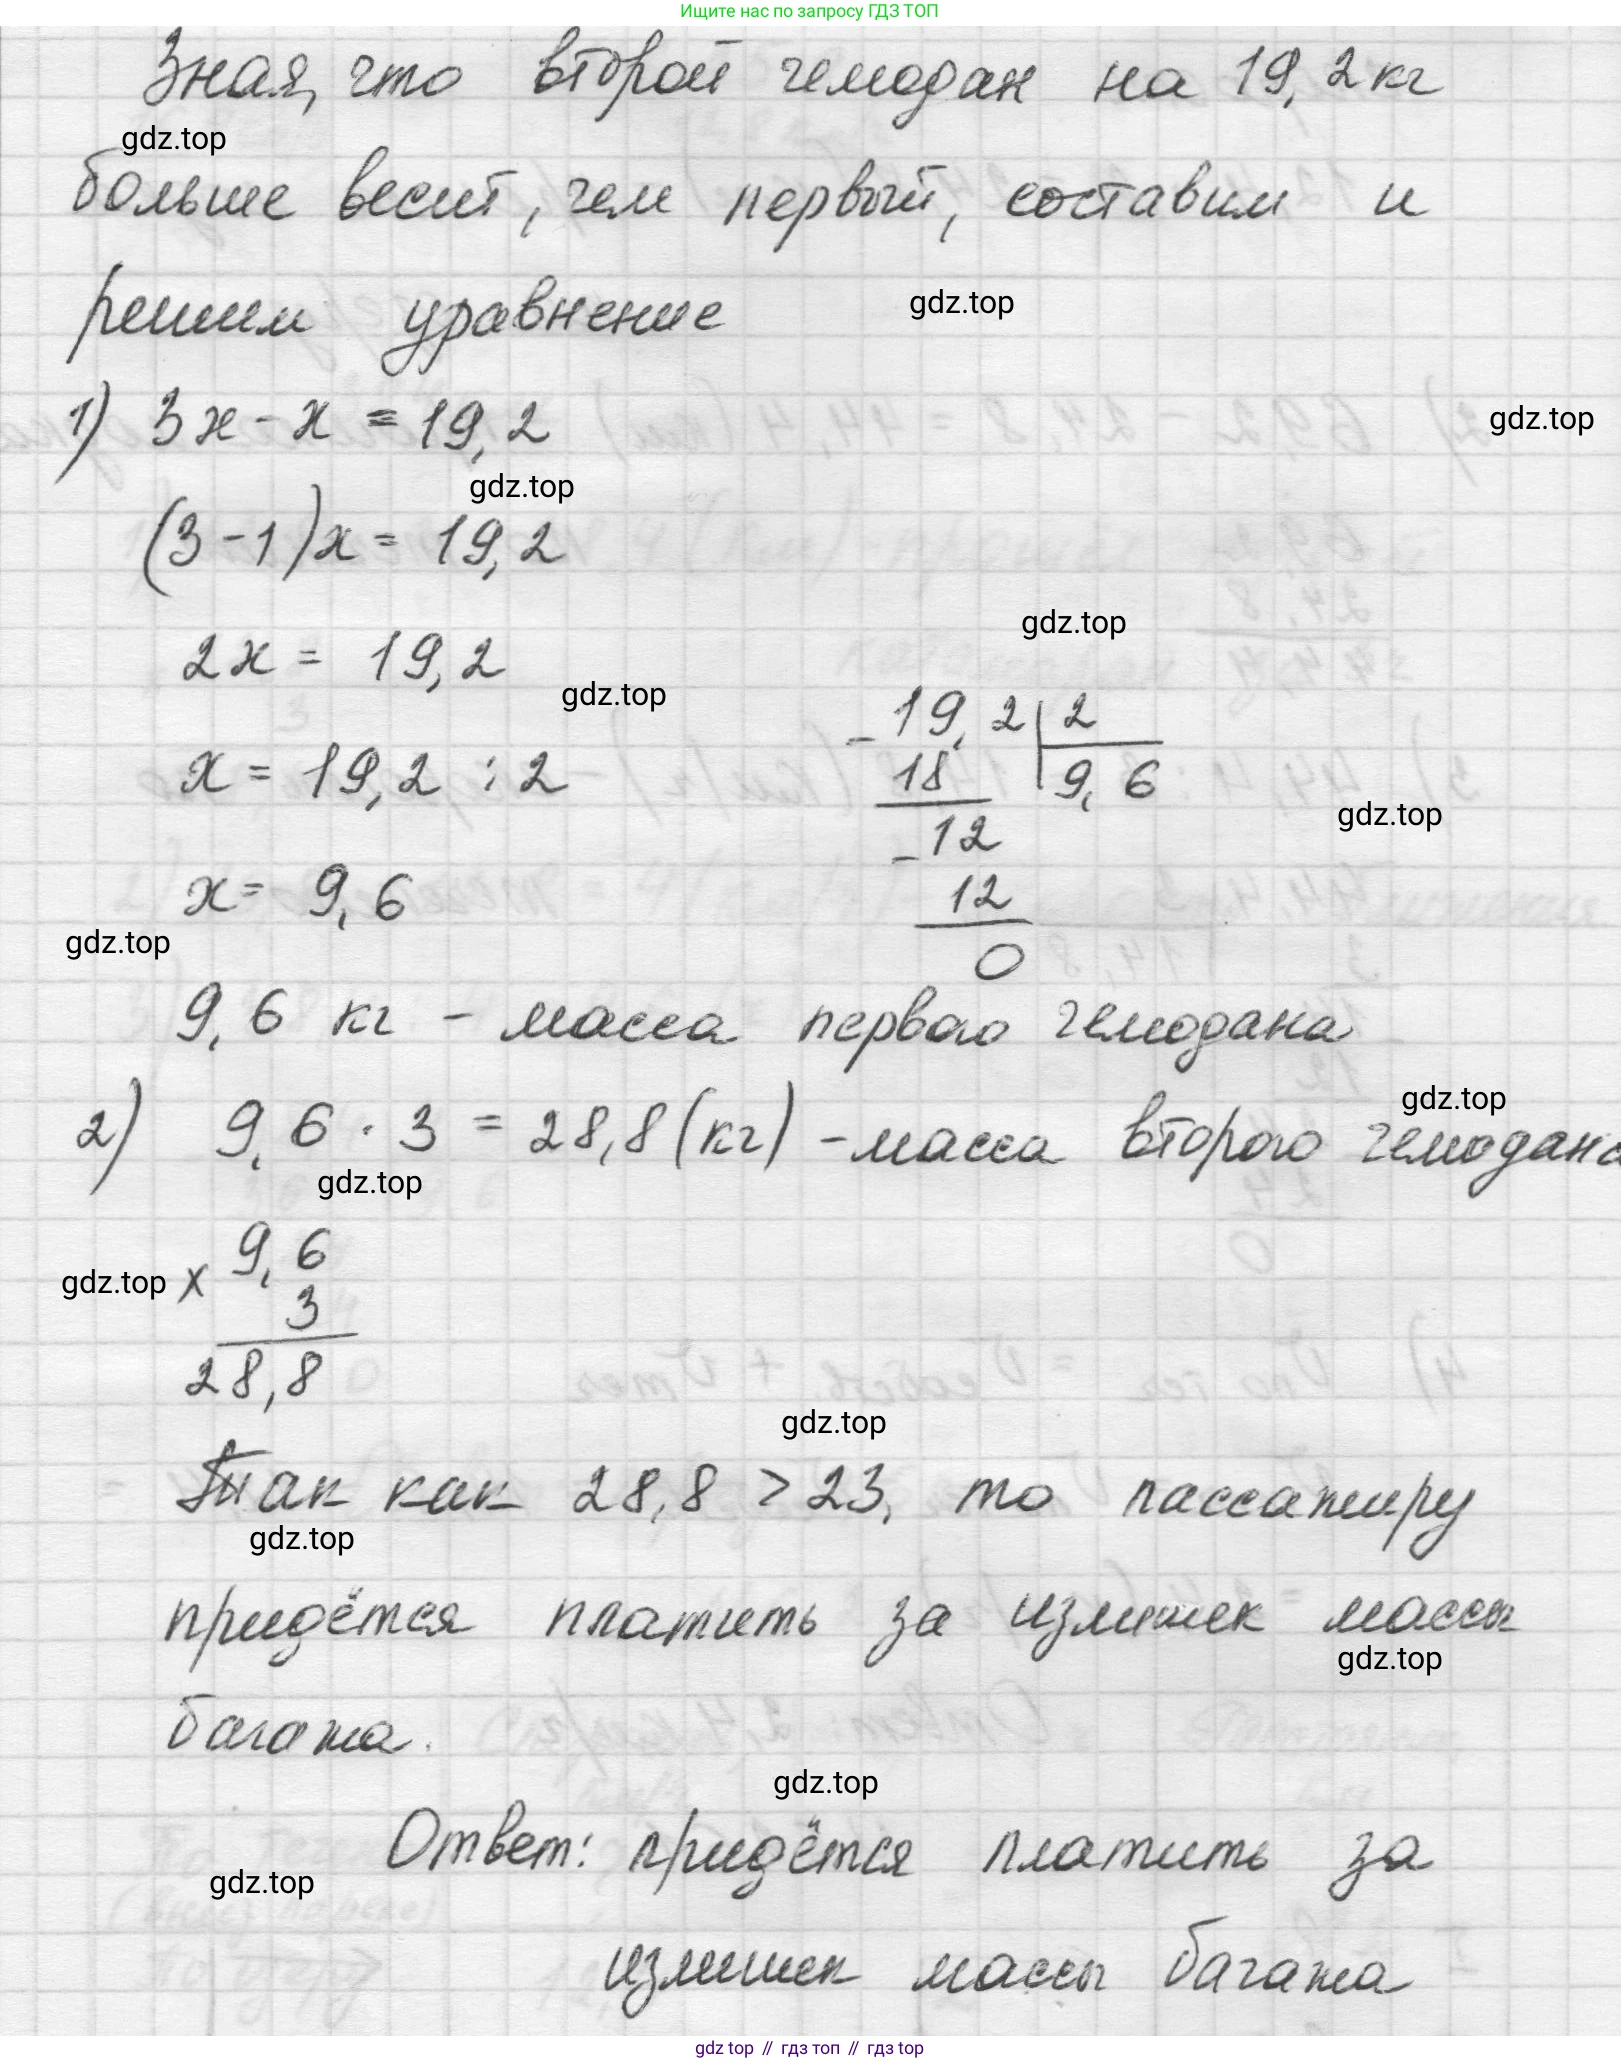 Ищите нас по запросу ГДЗ ТОП
Зная, что второй чемодан на 19,2 кг
gdz.top
больше весит, чем первый, составим и
решим уравнение
gdz.top
1) 3x - x = 19,2
gdz.top
gdz.top
(3 - 1)x = 19,2
gdz.top
2x = 19,2
gdz.top
- 19,2 | 2
x = 19,2 : 2
18 9,6
gdz.top
- 12
x = 9,6
12
gdz.top
0
9,6 кг - масса первого чемодана
gdz.top
2) 9,6 · 3 = 28,8 (кг) - масса второго чемодана
gdz.top
9,6
gdz.top
x
3
28,8
gdz.top
Так как 28,8 > 23, то пассажиру
gdz.top
придётся платить за излишек массы
gdz.top
багажа.
gdz.top
Ответ: придётся платить за
gdz.top
излишек массы багажа
gdz top // гдз топ // гдз top